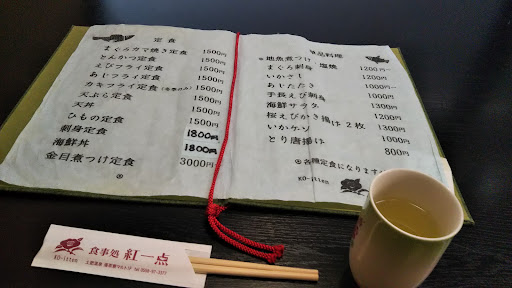 定食
まぐろカマ焼き定食 1500円
とんかつ定食 1500円
えびフライ定食 1500円
あじフライ定食 1500円
カキフライ定食(冬季のみ) 1500円
天ぷら定食 1500円
天丼 1500円
ひもの定食 1500円
刺身定食 1800円
海鮮丼 1800円
金目煮つけ定食 3000円
単品料理
地魚煮つけ・塩焼 1200円〜
まぐろ刺身 1200円
いかさし 1200円
あじたたき 1000円〜
手長えび刺身 1000円
海鮮サラダ 1300円
桜えびかき揚げ2枚 1300円
いかゲソ 1000円
とり唐揚げ 1000円
800円
各種定食になります
KO-itten
食事処 紅一点
KO-itten